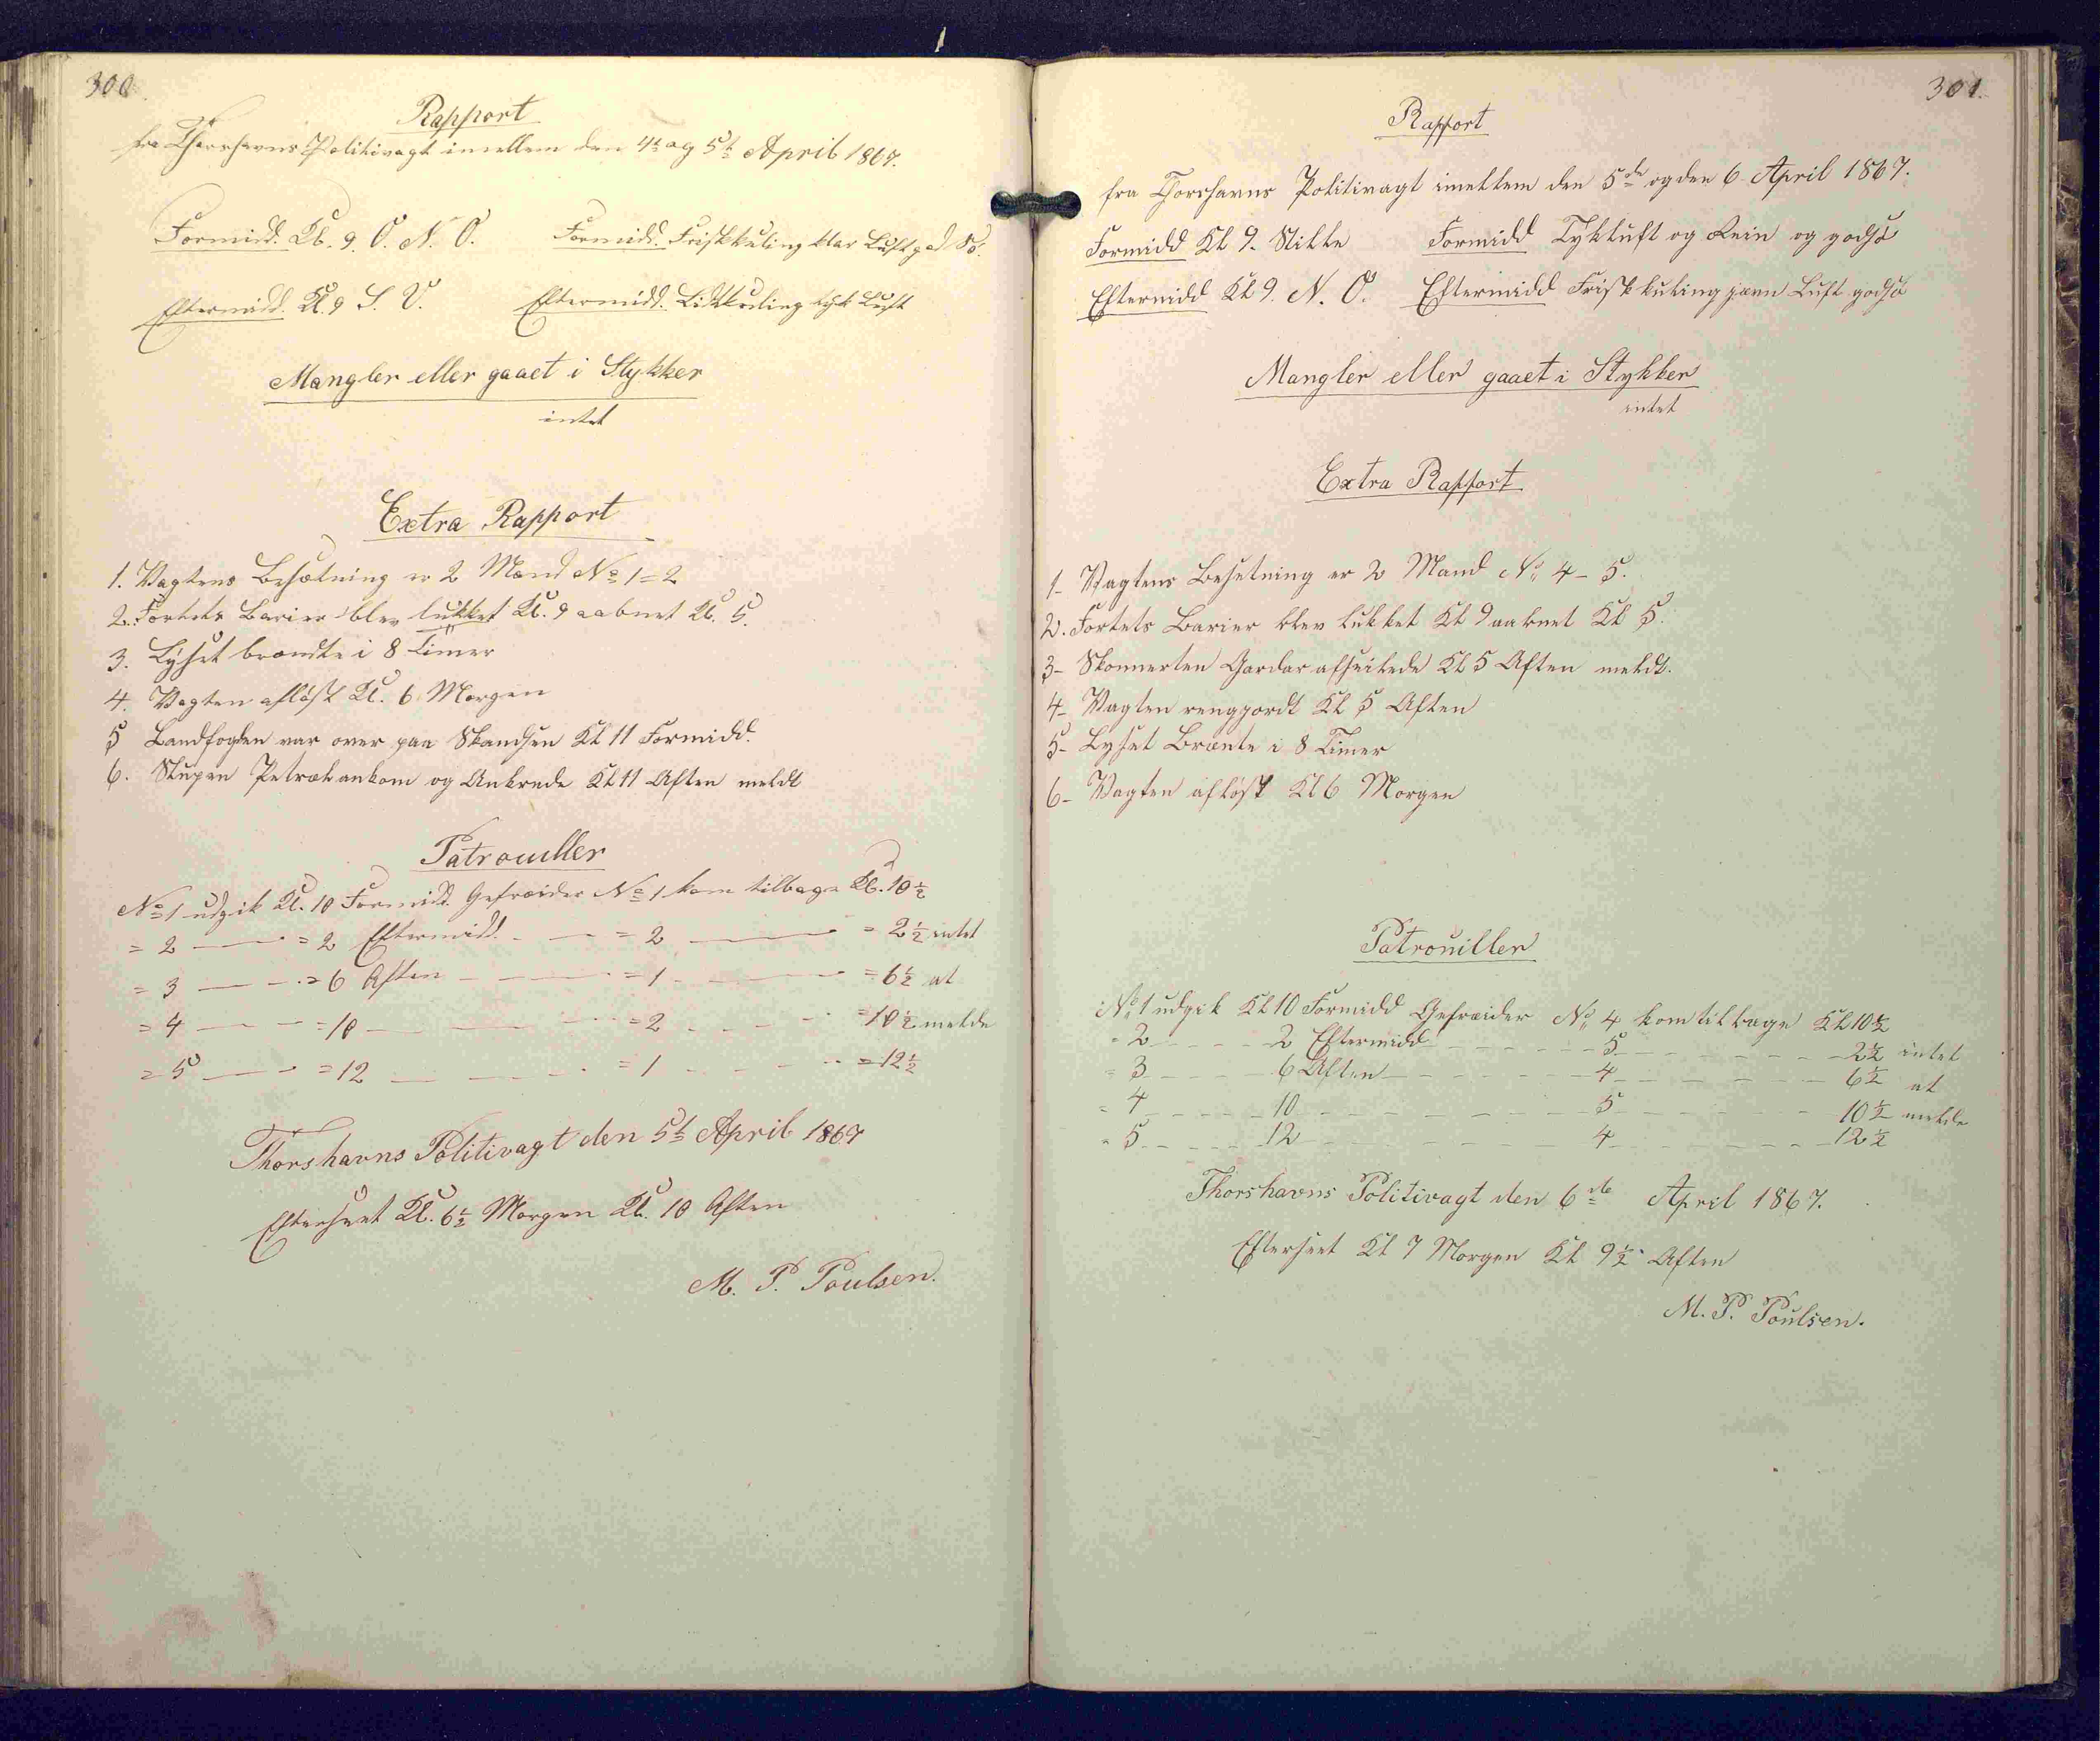 300
Rapport
fra Thorshavns Politivagt imellem den 4t og 5t April 1867.
Formidd. Kl. 9. O. N. O. Formidd. Friskkuling klar Luft god Sö.
Eftermidd. Kl. 9 S. V. Eftermidd. Lidtkuling tyk Luft
Mangler eller gaaet i Stykker
intet
Extra Rapport
1. Vagtens Besætning er 2 Mand No 1 = 2
2. Fortets Barier blev lukket Kl. 9 aabnet Kl. 5.
3. Lyset brændte i 8 Timer
4. Vagten aflöst Kl. 6 Morgen
5 Landfogden var over paa Skandsen Kl 11 Formidd.
6. Slupen Petræl ankom og Ankrede Kl 11 Aften meldt
Patrouller
No 1 udgik Kl. 10 Formidd. Gefreider No 1 kom tilbage Kl. 10 1/2
= 2 — = 2 Eftermidd. — = 2 — = 2 1/2 intet
= 3 — = 6 Aften — = 1 — = 6 1/2 at
= 4 — = 10 — = 2 — = 10 1/2 melde
= 5 — = 12 — = 1 — = 12 1/2
Thorshavns Politivagt den 5t April 1867
Efterseet Kl. 6 1/2 Morgen Kl. 10 Aften
M. P. Poulsen.
301.
Rapport
fra Thorshavns Politivagt imellem den 5de og den 6 April 1867.
Formidd Kl 9. Stille Formidd Tykluft og Rein og godsö
Eftermidd Kl 9. N. O. Eftermidd Friskkuling jævn Luft godsö
Mangler eller gaaet i Stykker
intet
Extra Rapport
1- Vagtens Besetning er 2 Mand No 4 - 5.
2. Fortets Barier blev lukket Kl 9 aabnet Kl 5.
3- Skonnerten Gardar afseilede Kl 5 Aften meldt.
4- Vagten rengjordt Kl 5 Aften
5- Lyset Brænte i 8 Timer
6- Vagten aflöst Kl 6 Morgen
Patrouiller
No 1 udgik Kl 10 Formidd Gefreider No 4 kom tilbage Kl 10 1/2
" 2 - - - 2 Eftermidd - - - 5 - - - 2 1/2 intet
" 3 - - - 6 Aften - - - 4 - - - 6 1/2 at
" 4 - - - 10 - - - 5 - - - 10 1/2 melde
" 5 - - - 12 - - - 4 - - - 12 1/2
Thorshavns Politivagt den 6de April 1867.
Efterseet Kl 7 Morgen Kl 9 1/2 Aften
M. P. Poulsen.